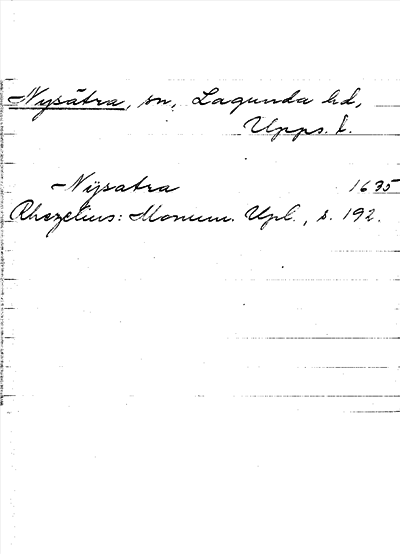 Nysätra, sn, Lagunda hd,
Upps. l.
Nijsatra 1635
Rhezelius: Monum. Upl., s. 192.